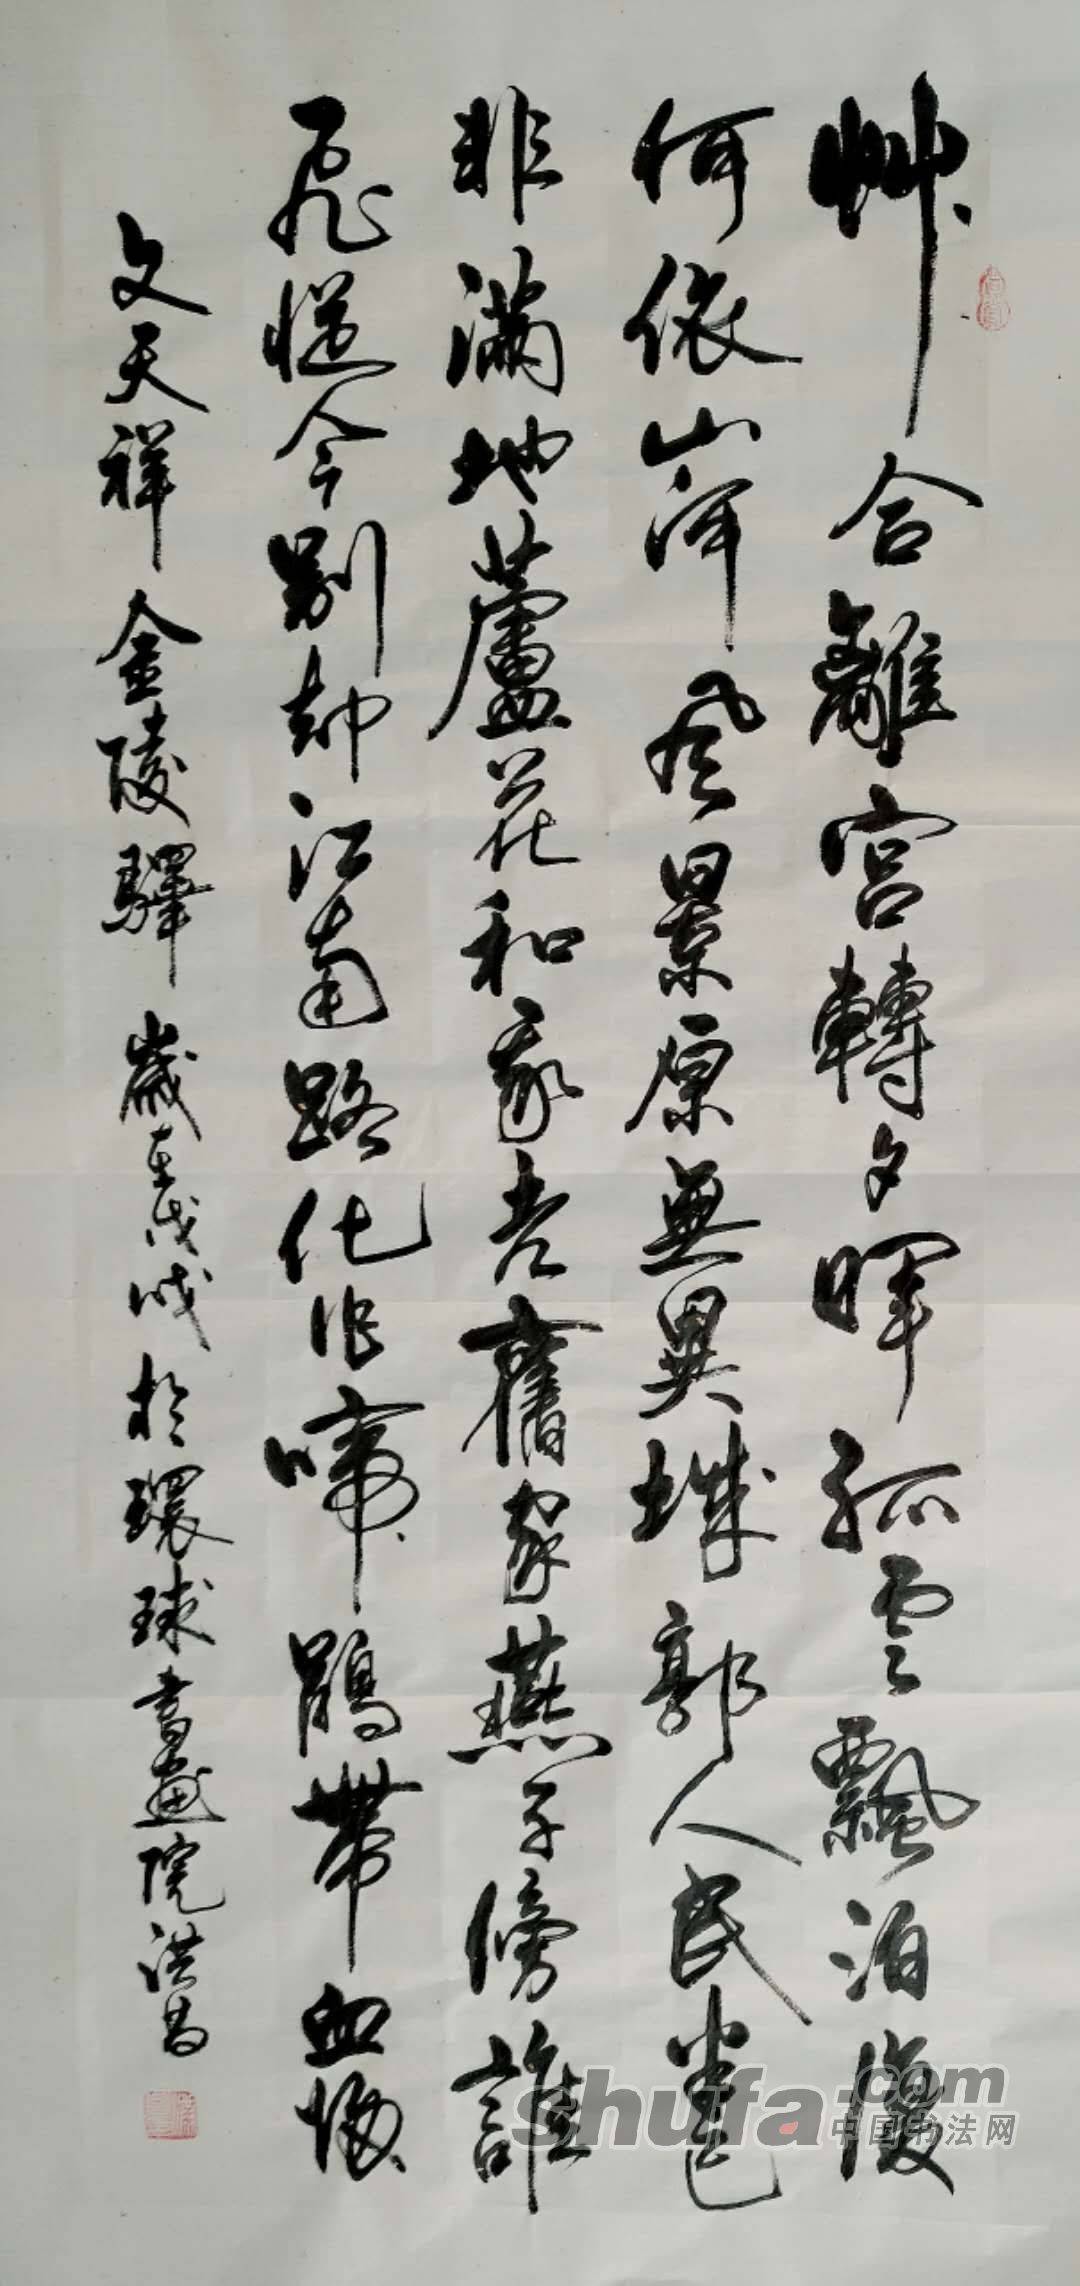 艸合離宮轉夕暉孤雲飄泊復
何依山河風景原無異城郭人民半已
非滿地蘆花和我老舊家燕子傍誰
飛從今別却江南路化作啼鵑帶血歸
文天祥 金陵驛 歲在戊戌於環球書畫院洪昌
shufa.com
中国书法网